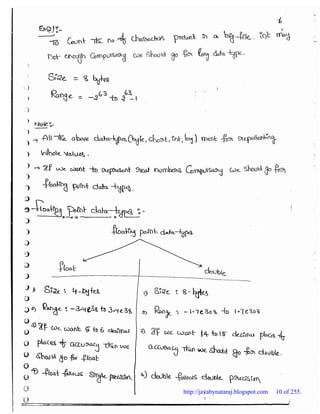 Eg(2):-
To Count the no. of characters present in a big file. Int may
not enough Compulsory we should go for long data type.
Size = 8 bytes
Range = -2^63 to 2^63-1
Note:-
→ All the above data-types (byte, short, Int, long) ment for representing
whole values.
→ If we want to represent real numbers Compulsory we should go for
floating point data types.
→ Floating Point data-types :-
floating point data-types
float
double
1) Size : 4-bytes
1) Size : 8-bytes
2) Range : -3.4e38 to 3.4e38
2) Range : -1.7e308 to 1.7e308
3) If we want 5 to 6 decimal
places of accuracy then we
should go for float.
3) If we want 14 to 15 decimal places of
accuracy then we should go for double.
4) float follows Single precision.
4) double follows double precision
http://javabynataraj.blogspot.com 10 of 255.